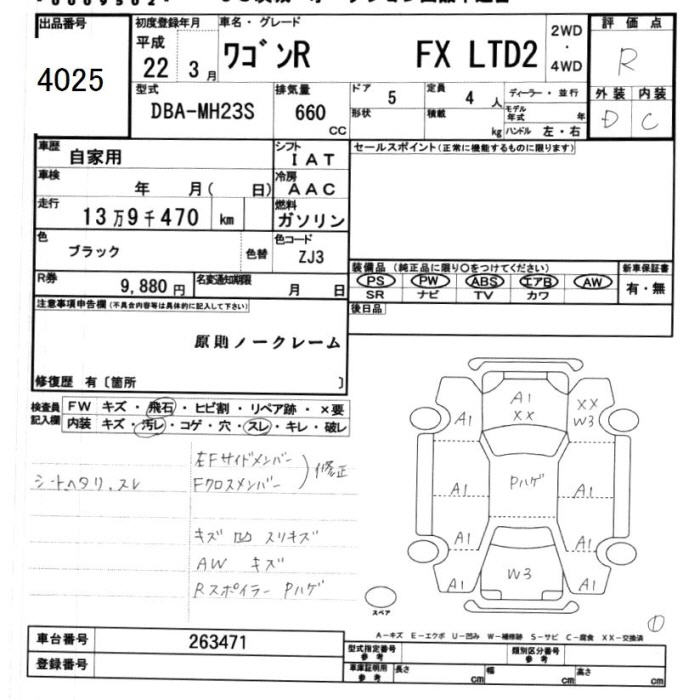 出品番号
4025
初度登録年月
平成
22 3月
車名・グレード
ワゴンR FX LTD2
2WD
・
4WD
評価点
R
外装 内装
D C
型式
DBA-MH23S
排気量
660
CC
ドア 5
定員 4 人
ディーラー・並行
形状
積載
kg
モデル年式 年
ハンドル 左・右
車歴
自家用
シフト
IAT
セールスポイント(正常に機能するものに限ります)
車検
年 月( 日)
冷房
AAC
走行
13万9千470 km
燃料
ガソリン
色
ブラック
色替
色コード
ZJ3
R券
9,880円
名変通知期限
月 日
装備品(純正品に限り○をつけてください)
新車保証書
PS PW ABS エアB AW
有・無
SR ナビ TV カワ
後日品
注意事項申告欄(不具合内容等は具体的に記入して下さい)
原則ノークレーム
修復歴 有〔箇所 〕
検査員記入欄
FW キズ・飛石・ヒビ割・リペア跡・×要
内装 キズ・汚レ・コゲ・穴・スレ・キレ・破レ
シートヘタリ、スレ
左Fサイドメンバー
Fクロスメンバー
修正
キズ 凹 スリキズ
AW キズ
Rスポイラー Pハゲ
A1
XX
XX
W3
A1
Pハゲ
A1
A1
A1
A1
W3
A1
A1
スペア
①
A-キズ E-エクボ U-凹み W-補修跡 S-サビ C-腐食 XX-交換済
車台番号
263471
登録番号
型式指定番号
参考
類別区分番号
参考
車庫証明用
参考
長さ cm
幅 cm
高さ cm